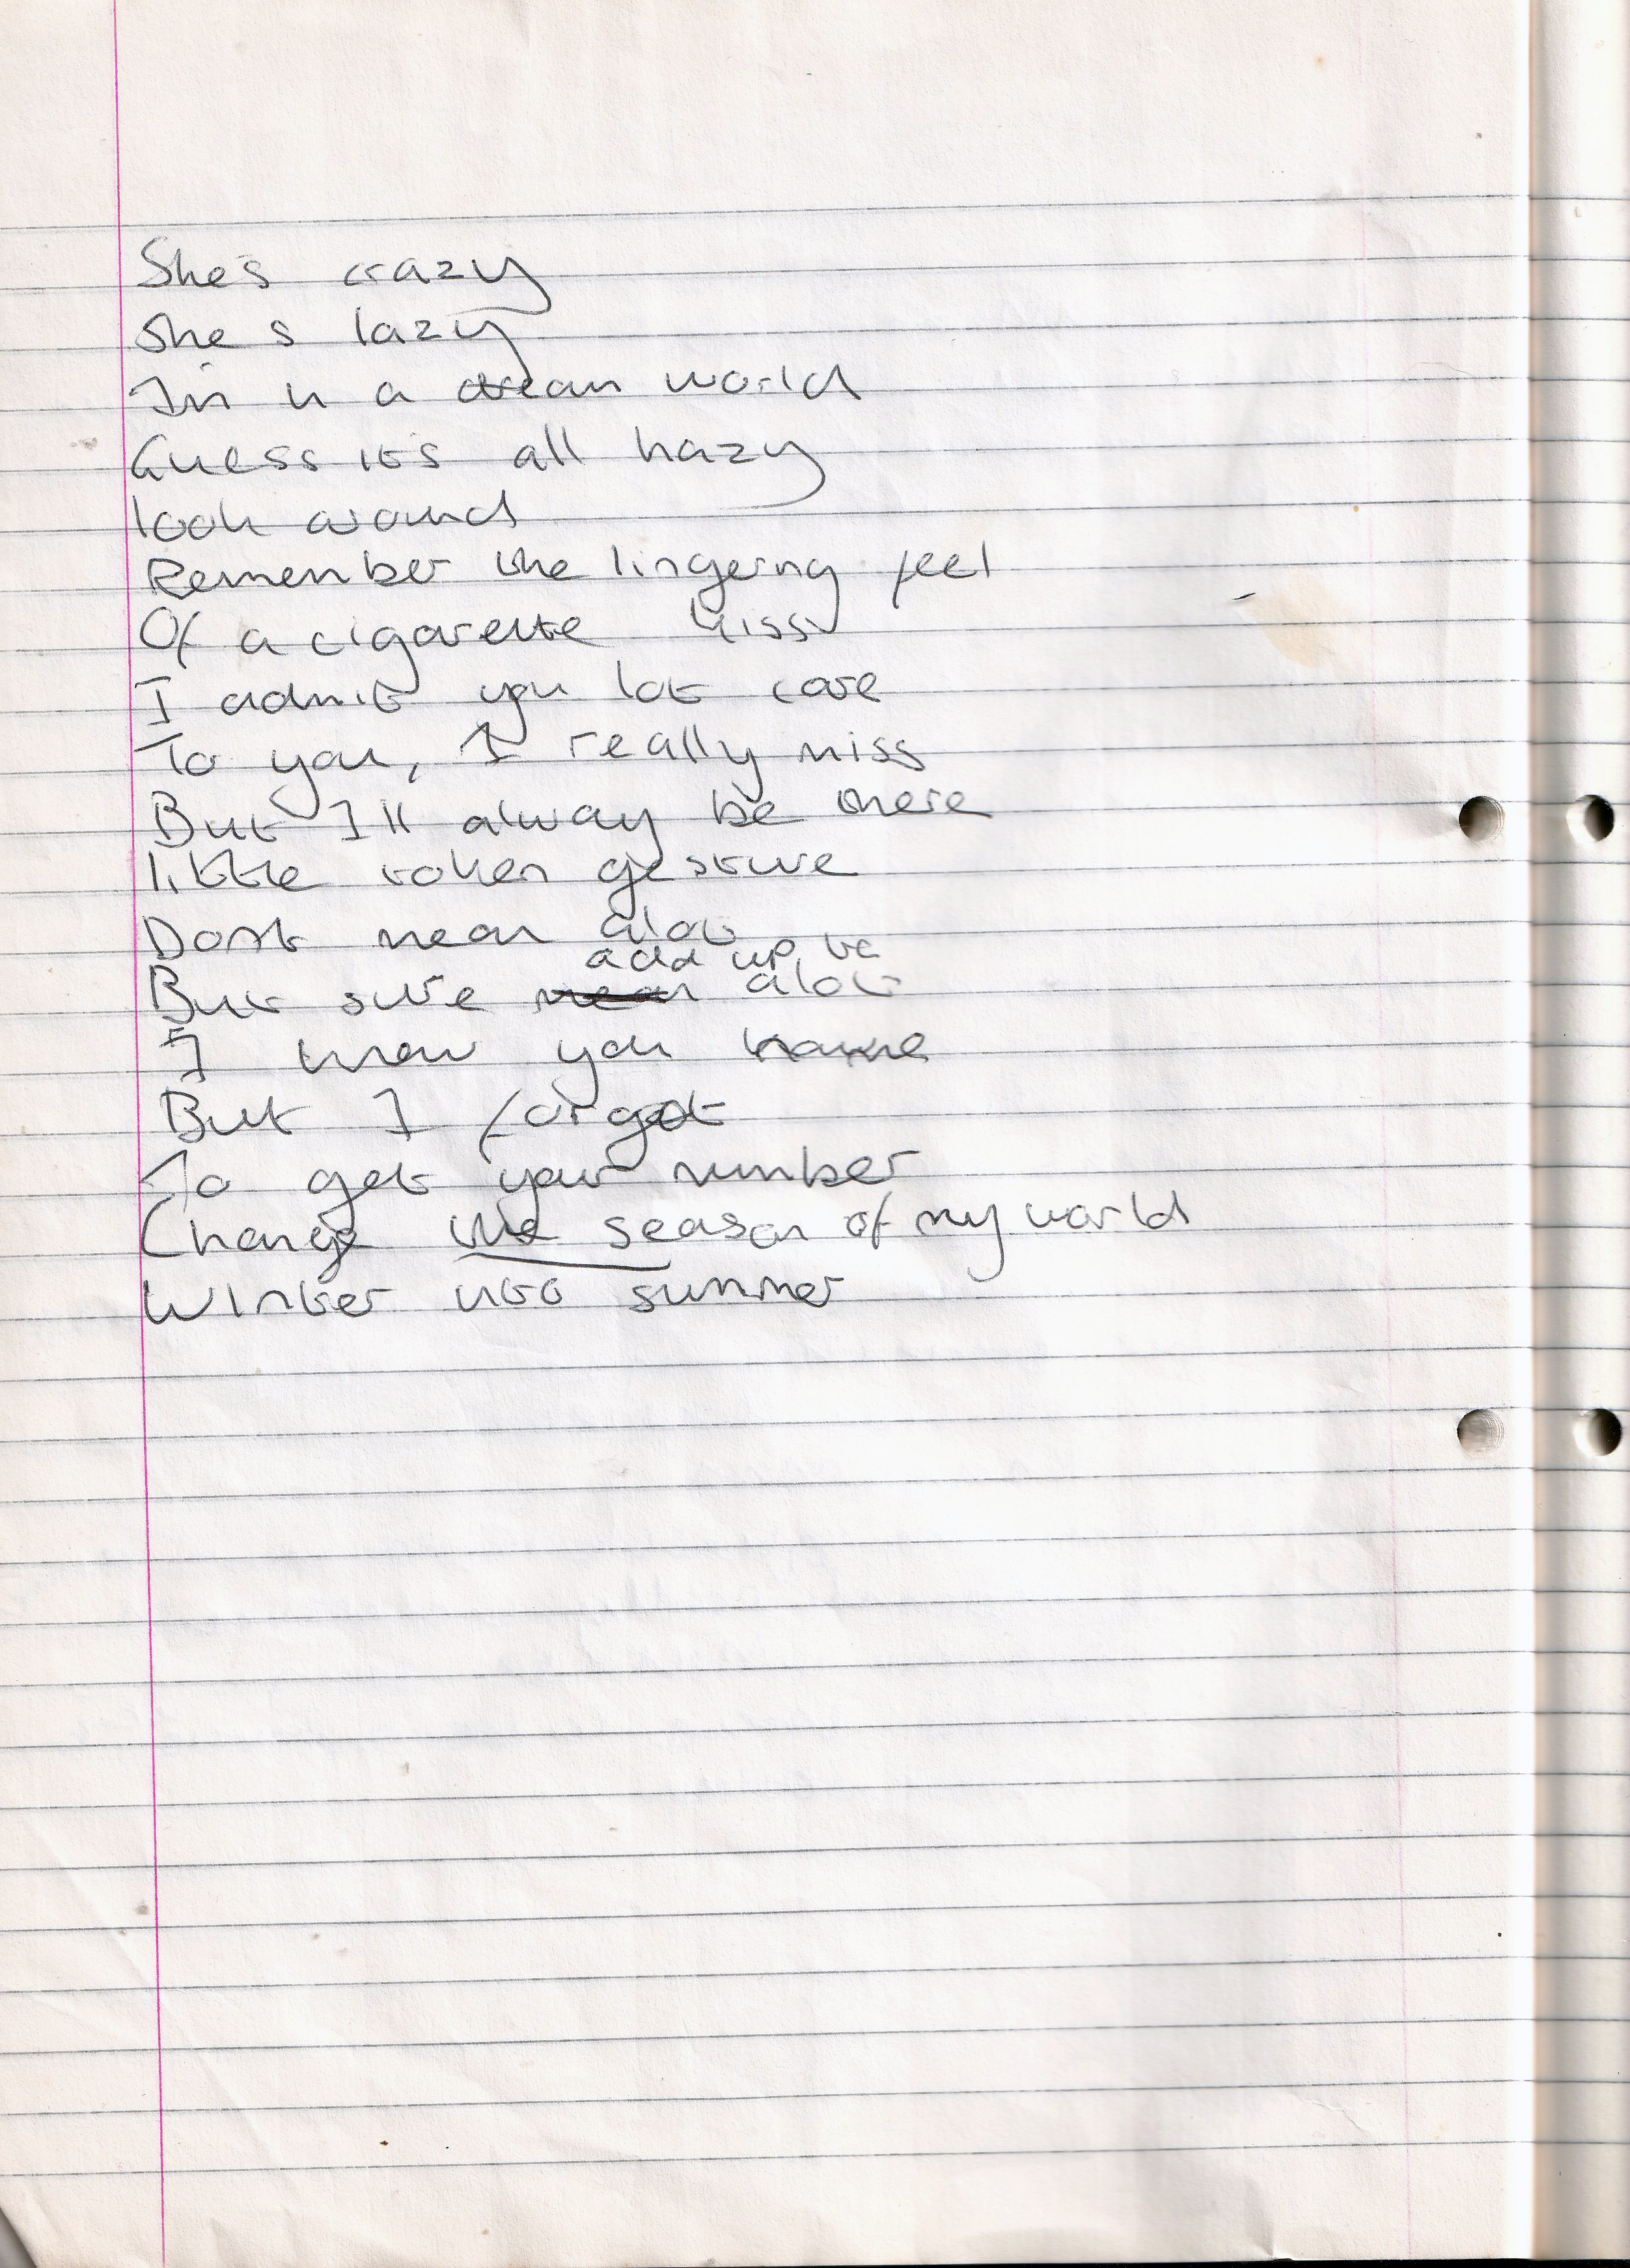 She's crazy
She s lazy
I'm in a dream world
Guess it's all hazy
look around
Remember the lingering feel
Of a cigarette kiss
I admit you lot care
To you, I really miss
But I'll alway be there
little token gesture
Dont mean alot
add up to
But sure mean alot
I know you name
But I forgot
To get your number
Change the season of my world
Winter into summer